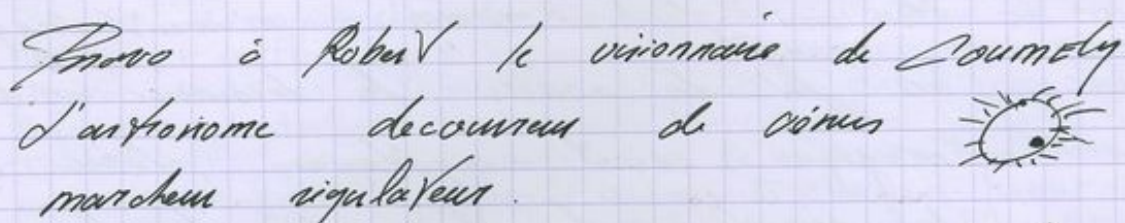 Bravo à Robert le visionnaire de Coumely
d'astronome decouvreur de vénus
marcheur régulateur.